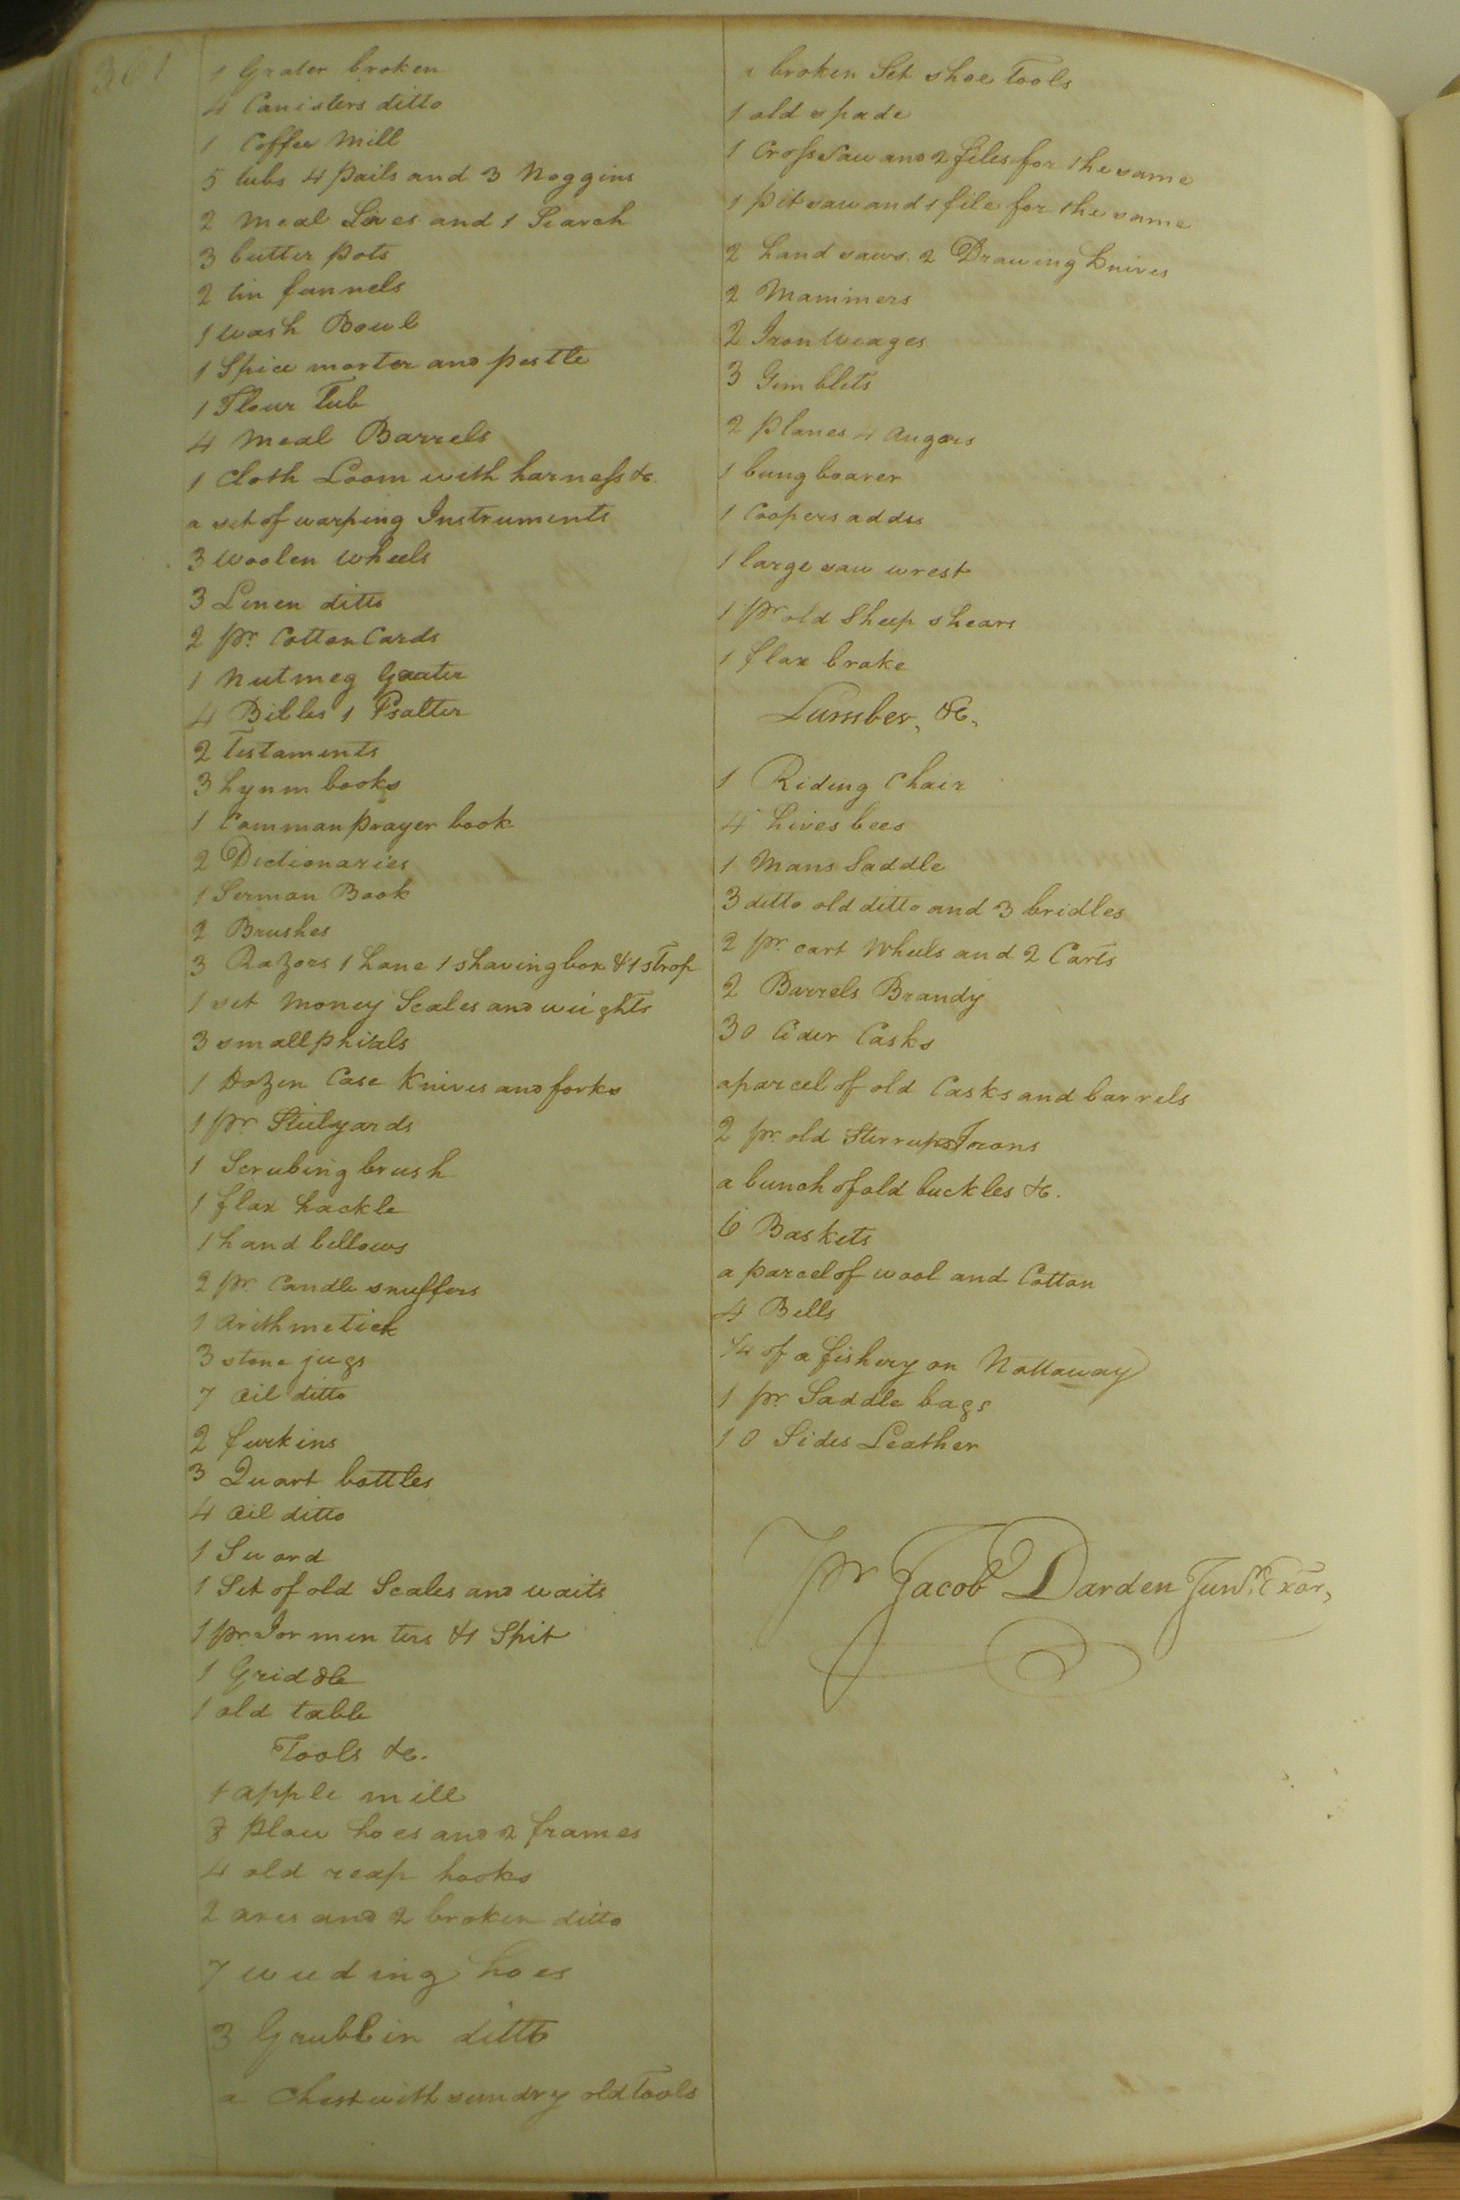 361
1 Grater broken
4 Canisters ditto
1 Coffee Mill
5 tubs 4 pails and 3 Noggins
2 Meal Sives and 1 Search
3 butter pots
2 tin funnels
1 wash Bowl
1 Spice morter and pestle
1 Flour Tub
4 Meal Barrels
1 Cloth Loom with harness &c
a set of warping Instruments
3 woolen wheels
3 Linen ditto
2 pr. Cotton Cards
1 Nutmeg Grater
4 Bibles 1 Psalter
2 Testaments
3 hynm books
1 Comman prayer book
2 Dictionaries
1 Serman Book
2 Brushes
3 Razors 1 hone 1 shaving box & 1 strop
1 set Money Scales and weights
3 small phials
1 Dozen Case Knives and forks
1 pr Stielyards
1 Scrubing brush
1 flax hackle
1 hand bellows
2 pr. Candle snuffers
1 Arithmetick
3 stone jugs
7 Oil ditto
2 furkins
3 Quart bottles
4 Oil ditto
1 Suord
1 Set of old Scales and waits
1 pr Tormenters & 1 Spit
1 Griddle
1 old table
Tools &c.
1 apple mill
8 plow hoes and 2 frames
4 old reap hooks
2 axes and 2 broken ditto
7 weeding hoes
3 Grubbin ditto
a Chest with sundry old Tools
a broken Set shoe Tools
1 old spade
1 Cross Saw and 2 files for the same
1 pit saw and 1 file for the same
2 hand saws. 2 Drawing knives
2 Mammers
2 Iron Weages
3 Gimblets
2 planes 4 Augers
1 bung boarer
1 Coopers adds
1 large saw wrest
1 pr old Sheep shears
1 flax brake
Lumber, &c,
1 Riding Chair
4 hives bees
1 Mans Saddle
3 ditto old ditto and 3 bridles
2 pr. cart Wheels and 2 Carts
2 Barrels Brandy
30 Cider Casks
a parcel of old Casks and barrels
2 pr. old Stirrups Irons
a bunch of old buckles &c.
6 Baskets
a parcel of wool and Cotton
4 Bells
1/4 of a fishery on Nottaway
1 pr Saddle bags
10 Sides Leather
pr Jacob Darden Junr. Exor,